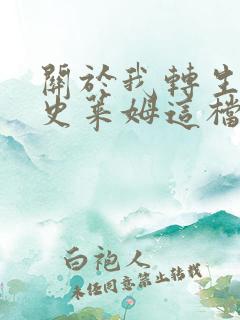 關於我轉生
史萊姆這檔
白袍人
未經同意禁止轉載